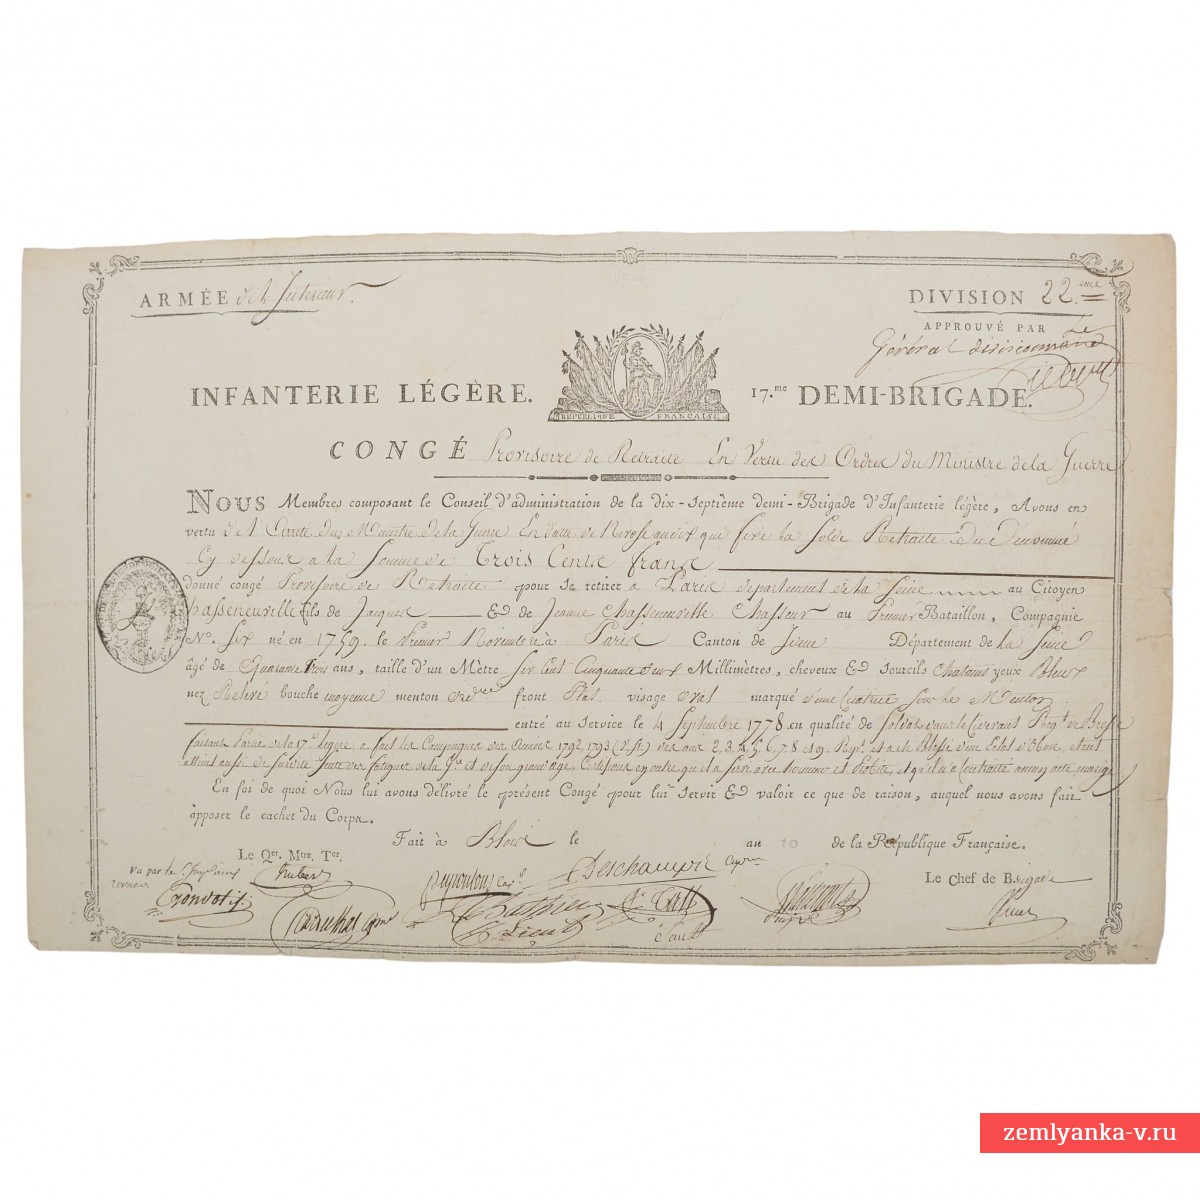 ARMÉE de l'Interieur.
DIVISION 22.eme
APPROUVÉ PAR Le
Général
INFANTERIE LÉGÈRE.
RÉPUBLIQUE FRANÇAISE
17.me DEMI-BRIGADE.
CONGÉ Provisoire de Retraite En Vertu des Ordres du Ministre de la Guerre
NOUS Membres composant le Conseil d'administration de la dix-septième demi-Brigade d'Infanterie légère, Avons en
vertu de l'Arreté du Ministre de la Guerre En datte de que fixe la Solde Retraite Du Dénommé
Cy dessous a la Somme de Trois Cents francs
donné congé Provisoire de Retraite pour se retirer à Paris département de la Seine au Citoyen
Chasseneuville fils de Jacques & de Jeanne Chasseneuville Chasseur au Premier Bataillon, Compagnie
N°. Six né en 1759. le Premier Novembre à Paris Canton de Département de la Seine
âgé de Quarante trois ans, taille d'un Mètre Six Cent Cinquante deux Millimètres, cheveux & sourcils Chatains yeux Bleus
nez Relevé bouche moyenne menton front Plat visage oval marqué d'une Cicatrice Sur le Menton
entré au service le 4 Septembre 1778 en qualité de Soldat
faisant Partie de la 17e légère, a fait les Campagnes des Années 1792, 1793 des ans 2, 3, 4, 5, 6, 7, 8 et 9. et a été Blessé d'un Eclat d'Obus, étant
atteint aussi de Surdité Suite des fatigues de la et de son grand âge, Certifions en outre qu'il a Servi avec honneur et Probité, et qu'il n'a Contracté aucun acte
En foi de quoi Nous lui avons délivré le présent Congé pour lui servir & valoir ce que de raison, auquel nous avons fait
apposer le cachet du Corps.
Fait à Blois le an 10 de la République Française.
Le Qer. Mtre. Ter.
Le Chef de Brigade
Vu par le
Deschamps
zemlyanka-v.ru